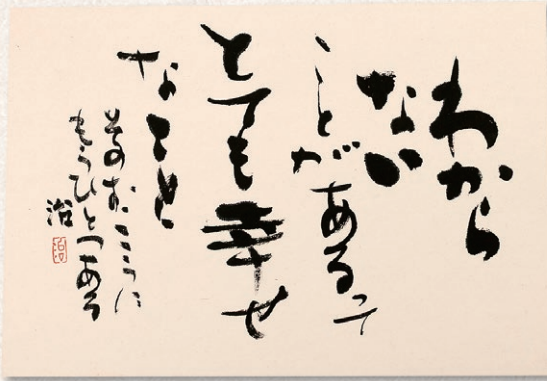 わから
ない
ことがあるって
とても幸せ
なこと
ここに
もうひとつある
治